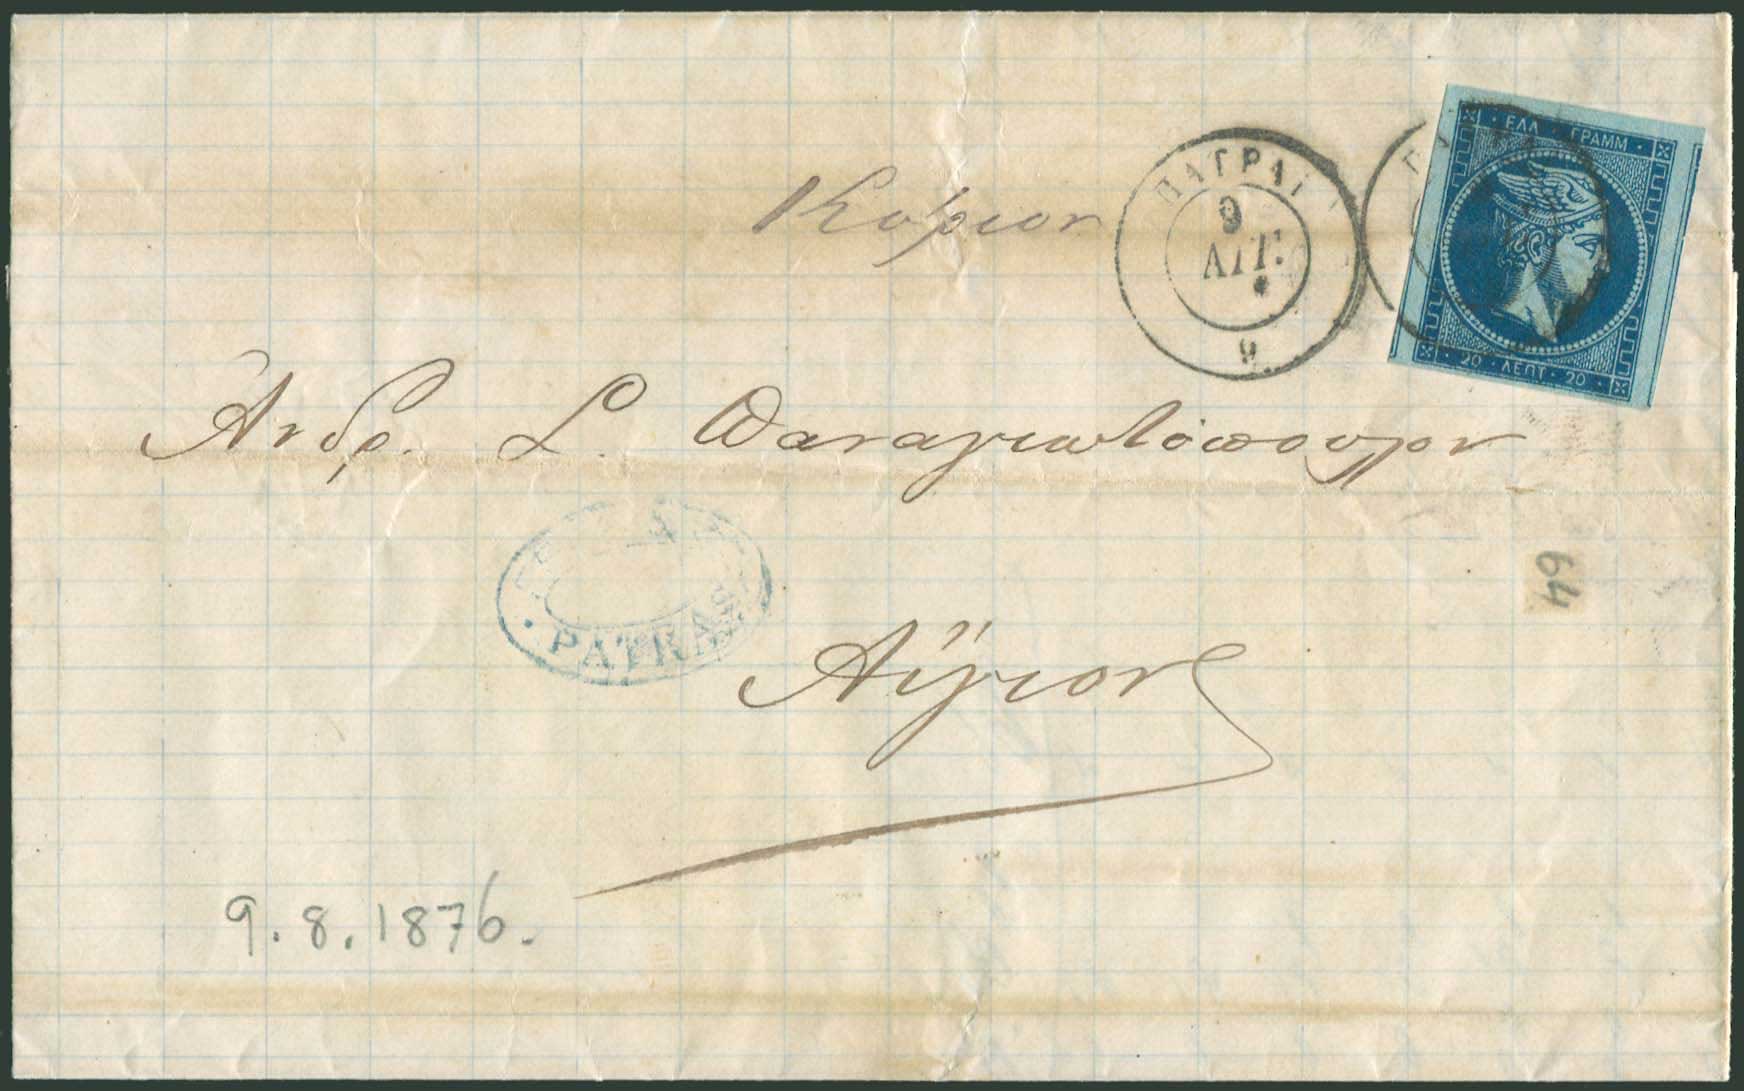 ΕΛΛ · ΓΡΑΜΜ
20 · ΛΕΠΤ · 20
ΠΑΤΡΑΙ
9
ΑΥΓ.
9
Κύριον
Ανδρ. Σ. Παναγιωτόπουλον
PATRAS
64
Αἴγιον
9.8.1876.